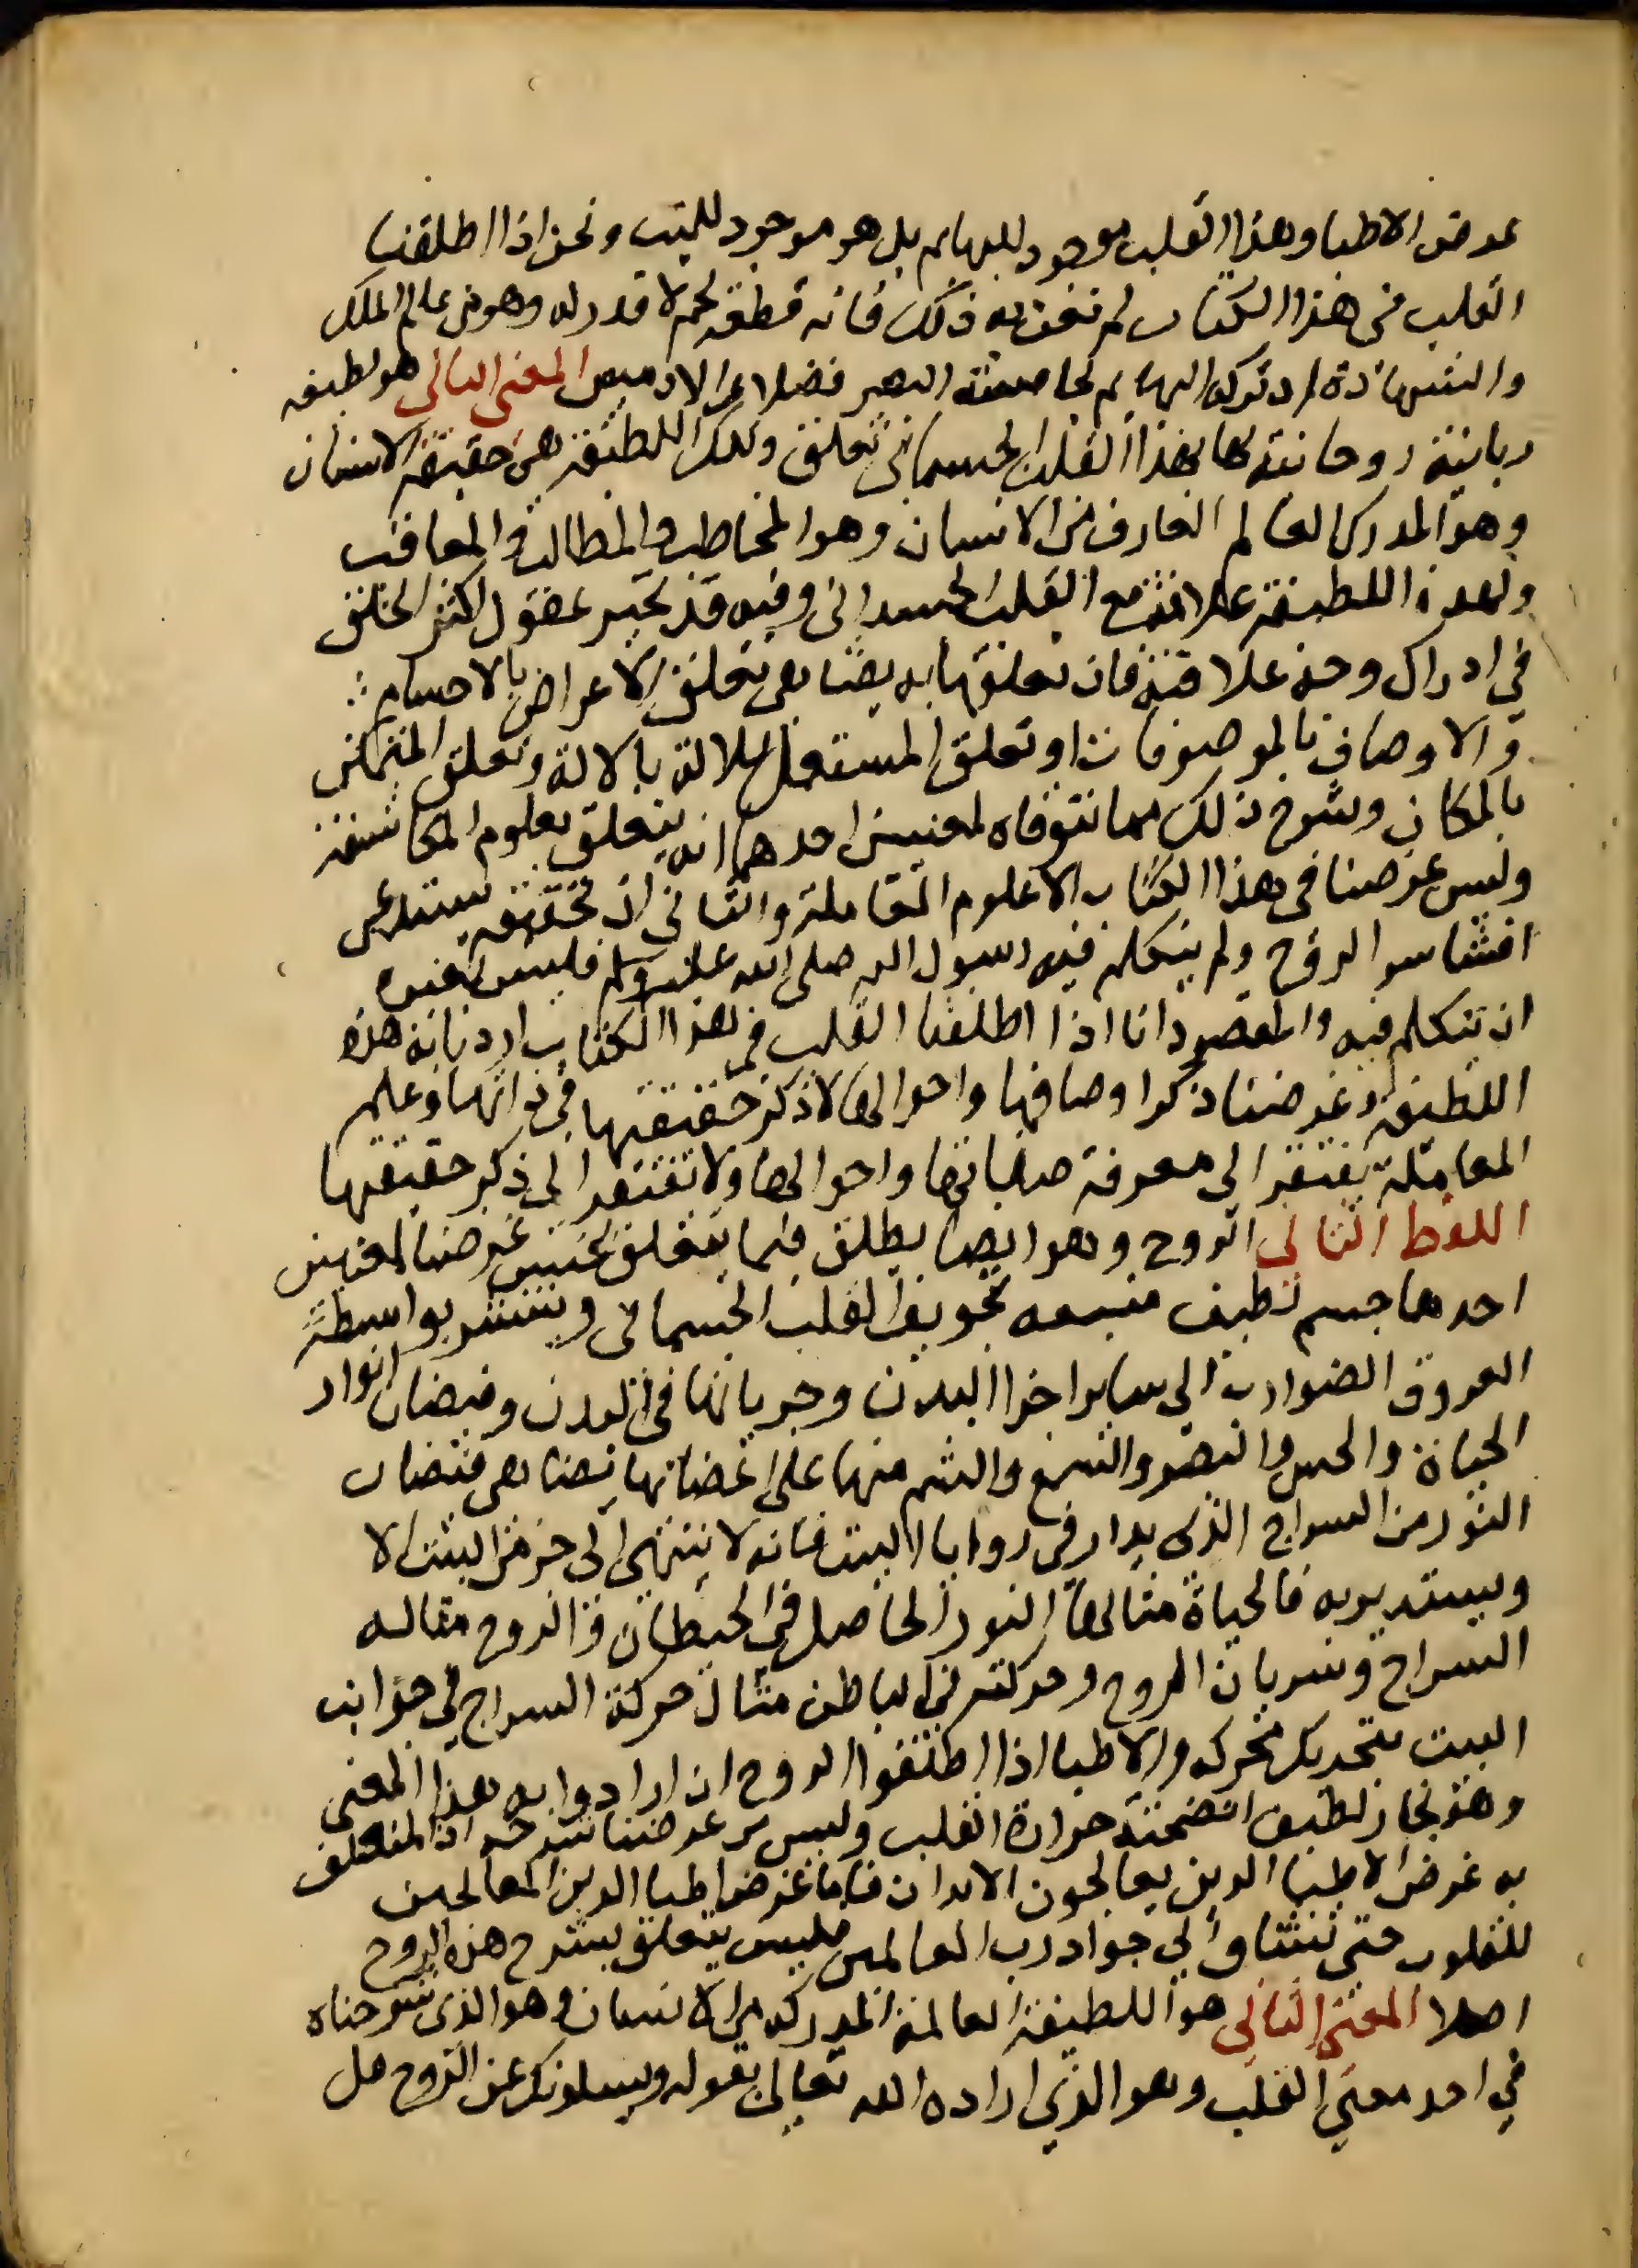 غرض الاطبا وهذا القلب موجود للبهايم بل هو موجود للميت ونحن اذا اطلقنا
القلب في هذا الكتاب لم نعن به ذلك فانه قطعة لحم لا قدر له وهو من عالم الملك
والشهادة اد تدركه البهايم بحاسة البصر فضلا عن الادميين المعنى الثاني هو لطيفة
ربانية روحانية لها بهذا القلب الجسماني تعلق وتلك اللطيفة هي حقيقة الانسان
وهو المدرك العالم العارف من الانسان وهو المخاطب والمطالب والمعاقب
ولهذه اللطيفة علاقة مع القلب الجسداني وفيه قد تحير عقول اكثر الخلق
في ادراك وجه علاقته فان تعلقها به يضاهي تعلق الاعراض بالاجسام
والاوصاف بالموصوفات او تعلق المستعمل للالة بالالة وتعلق المتمكن
بالمكان وشرح ذلك مما نتوقاه لمعنيين احدهما انه يتعلق بعلوم المكاشفة
وليس غرضنا في هذا الكتاب الا علوم المعاملة والثاني ان تحقيقه يستدعي
افشا سر الروح ولم يتكلم فيه رسول الله صلى الله عليه وسلم فليس لغيره
ان يتكلم فيه والمقصود انا اذا اطلقنا القلب في هذا الكتاب اردنا به هذه
اللطيفة وغرضنا ذكر اوصافها واحوالها لا ذكر حقيقتها في ذاتها وعلم
المعاملة يفتقر الى معرفة صفاتها واحوالها ولا تفتقر الى ذكر حقيقتها
اللفظ الثاني الروح وهو ايضا يطلق فيما يتعلق بجنس غرضنا لمعنيين
احدهما جسم لطيف منبعه تجويف القلب الجسماني وينتشر بواسطة
العروق الضوارب الى ساير اجزا البدن وجريانها في البدن وفيضان انوار
الحياة والحس والبصر والسمع والشم منها على اعضائها يضاهي فيضان
النور من السراج الذي يدار في زوايا البيت فانه لا ينتهي الى جز من البيت الا
ويستدير به فالحياة مثالها النور الحاصل في الحيطان والروح مثاله
السراج وسريان الروح وحركته في الباطن مثال حركة السراج في جوانب
البيت بتحريك محركه والاطبا اذا اطلقوا الروح ان ارادوا به هذا المعنى
وهو بخار لطيف انضجته حرارة القلب وليس من غرضنا شرحه اذ المتعلق
به غرض الاطبا الذين يعالجون الابدان فاما غرض اطبا الدين المعالجين
للقلوب حتى تنساق الى جوار رب العالمين فليس يتعلق بشرح هذه الروح
اصلا المعنى الثاني هو اللطيفة العالمة المدركة من الانسان وهو الذي شرحناه
في احد معني القلب وهو الذي اراده الله تعالى بقوله ويسلونك عن الروح قل